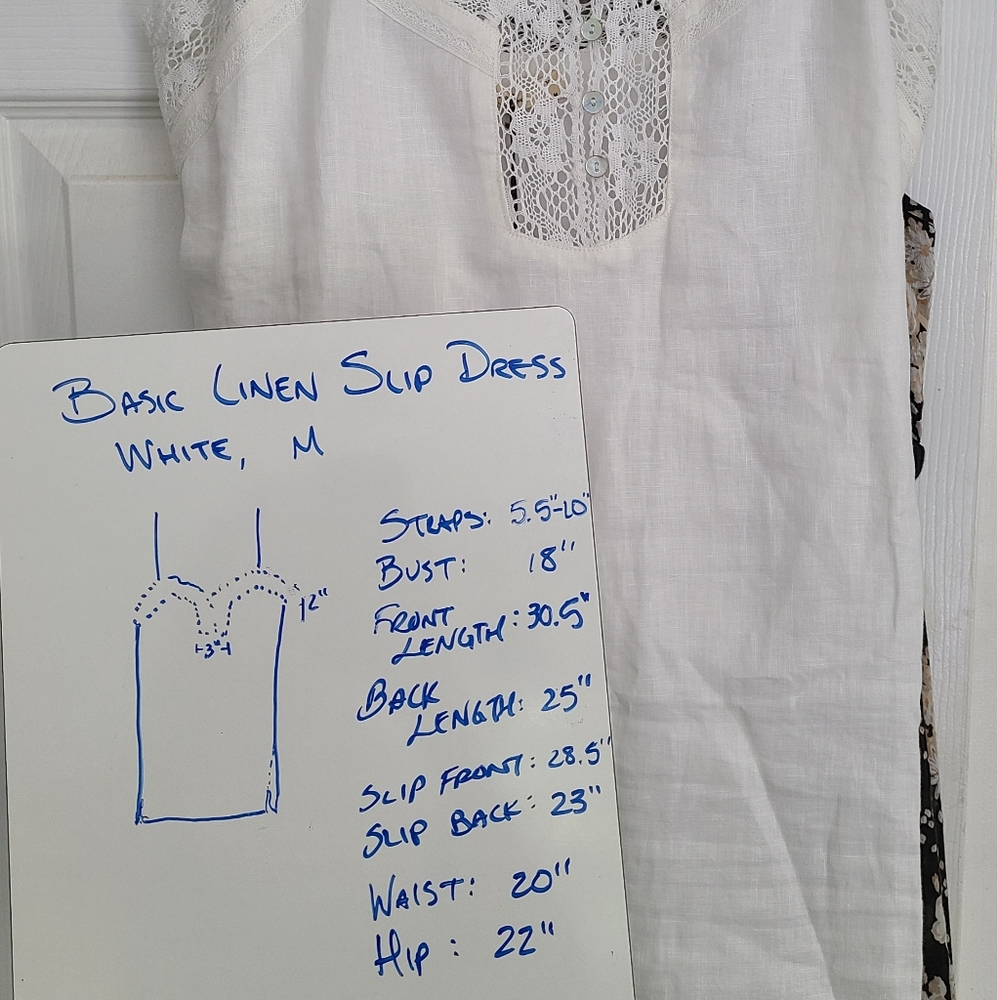 BASIC LINEN SLIP DRESS
WHITE, M
STRAPS: 5.5"-10"
BUST: 18"
FRONT
LENGTH: 30.5"
BACK
LENGTH: 25"
SLIP FRONT: 28.5"
SLIP BACK: 23"
WAIST: 20"
HIP: 22"
2"
3"